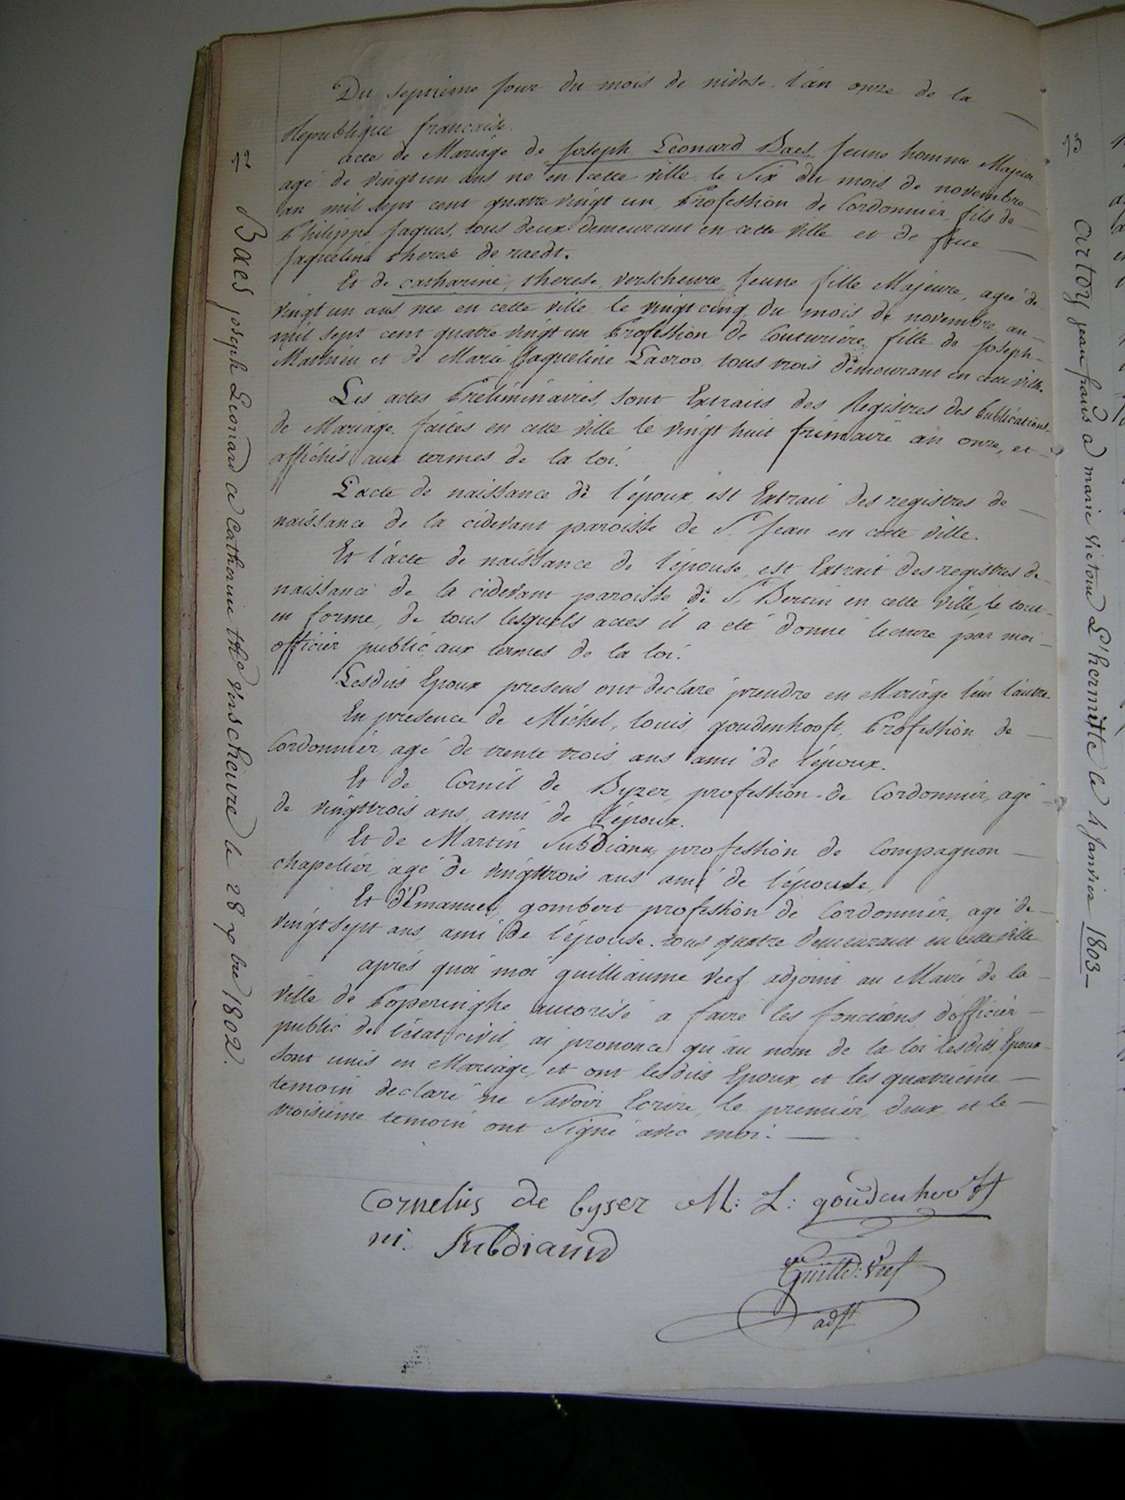 Du septieme jour du mois de nivose l'an onze de la
Republique francaise.
12
acte de Mariage de Joseph Leonard Baes Jeune homme Majeur
agé de vingt un ans né en cette ville le Six du mois de novembre
an mil sept cent quatre vingt un, Profession de Cordonnier, fils de
Philippe Jaques, tous deux demeurant en cette ville et de feue
Jaqueline therese de raedt.
Et de catharine, therese, verscheure Jeune fille Majeure, agée de
vingt un ans née en cette ville le vingt cinq du mois de novembre, an
mil sept cent quatre vingt un Profession de Couturiére, fille de Joseph
Mathieu et de Marie Jaqueline Lacroo, tous trois démeurant en cette ville.
Les actes Préliminaires, Sont Extraits des Registres des Publications
de Mariage faites en cette ville le vingt huit frimaire an onze, et
affichés aux termes de la loi.
L'acte de naissance de l'époux est Extrait des registres de
naissance de la cidevant paroisse de St Jean en cette ville.
Et l'acte de naissance de l'épouse, est Extrait des registres de
naissance de la cidevant paroisse de St Bertin en cette ville, le tout
en forme, de tous lesquels actes il a eté donné lecture par moi
officier public aux termes de la loi.
Lesdits Epoux presens ont declaré prendre en Mariage l'un l'autre
En presence de Michel, louis, goudenhooft, Profession de
Cordonnier agé de trente trois ans ami de l'époux.
Et de Cornil de Byzer, profession de Cordonnier, agé
de vingttrois ans, ami de l'époux.
Et de Martin Subdiann, profession de Compagnon
chapelier, agé de vingttrois ans ami de l'épouse,
Et d'Emanuel gombert profession de Cordonnier, agé de
vingt sept ans, ami de l'épouse. tous quatre demeurant en cette ville
aprés quoi moi guilliaume Veef adjoint au Maire de la
ville de Poperinghe autorisé a faire les fonctions d'officier
public de l'état civil, ai prononcé qu'au nom de la loi lesdits Epoux
Sont unis en Mariage, et ont lesdits Epoux et les quatriéme
temoin declaré ne Savoir Ecrire, le premier, deux, et le
troisieme temoin ont Signé avec moi.
Cornelis de byser M: L: goudenhooft
m. Subdiaund
Guill: Veef
adjt
Baes joseph Leonard a Catherine thse Verscheure le 28 xbre 1802
13
artoy jean frans a marie victoire L'hermitte le 4 Janvier 1803